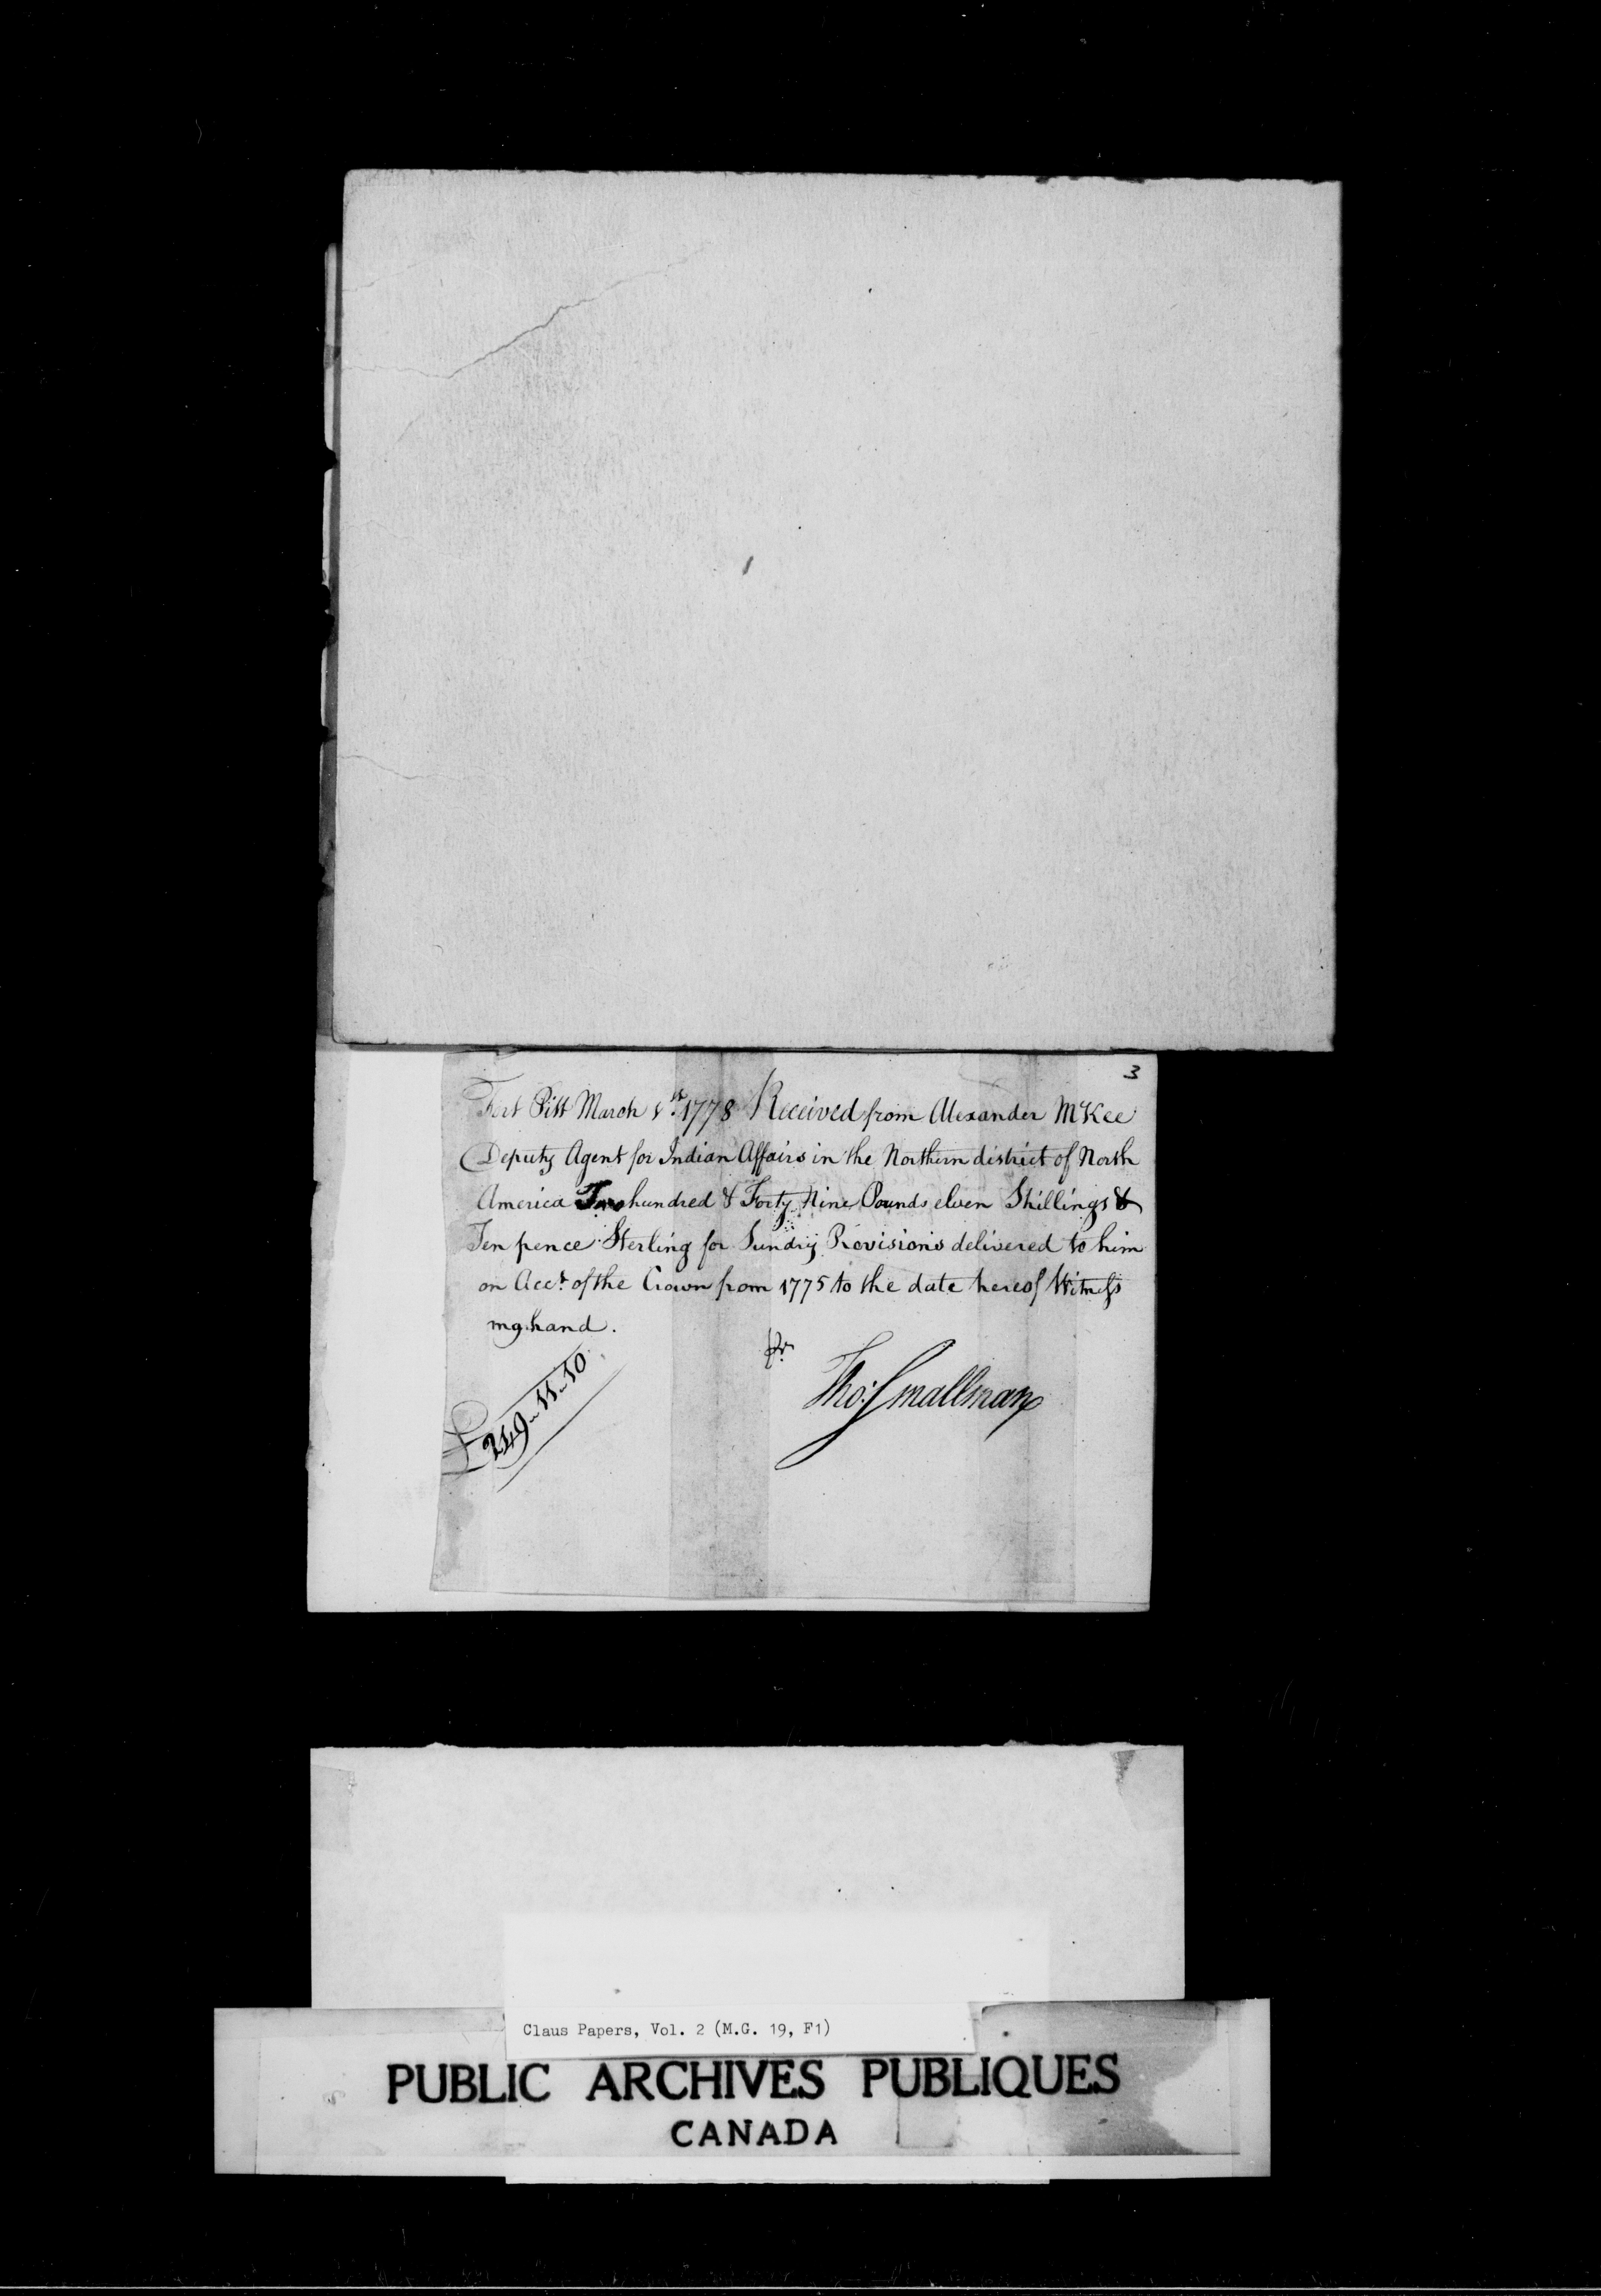 3
Fort Pitt March 1st 1778 Received from Alexander McKee
Deputy Agent for Indian Affairs in the Northern district of North
America Two hundred & Forty Nine Pounds eleven Shillings &
Ten pence Sterling for Sundry Provisions delivered to him
on Acct. of the Crown from 1775 to the date hereof Witness
my hand.
pr.
Tho: Smallman
£249..11..10
Claus Papers, Vol. 2 (M.G. 19, F1)
PUBLIC ARCHIVES PUBLIQUES
CANADA